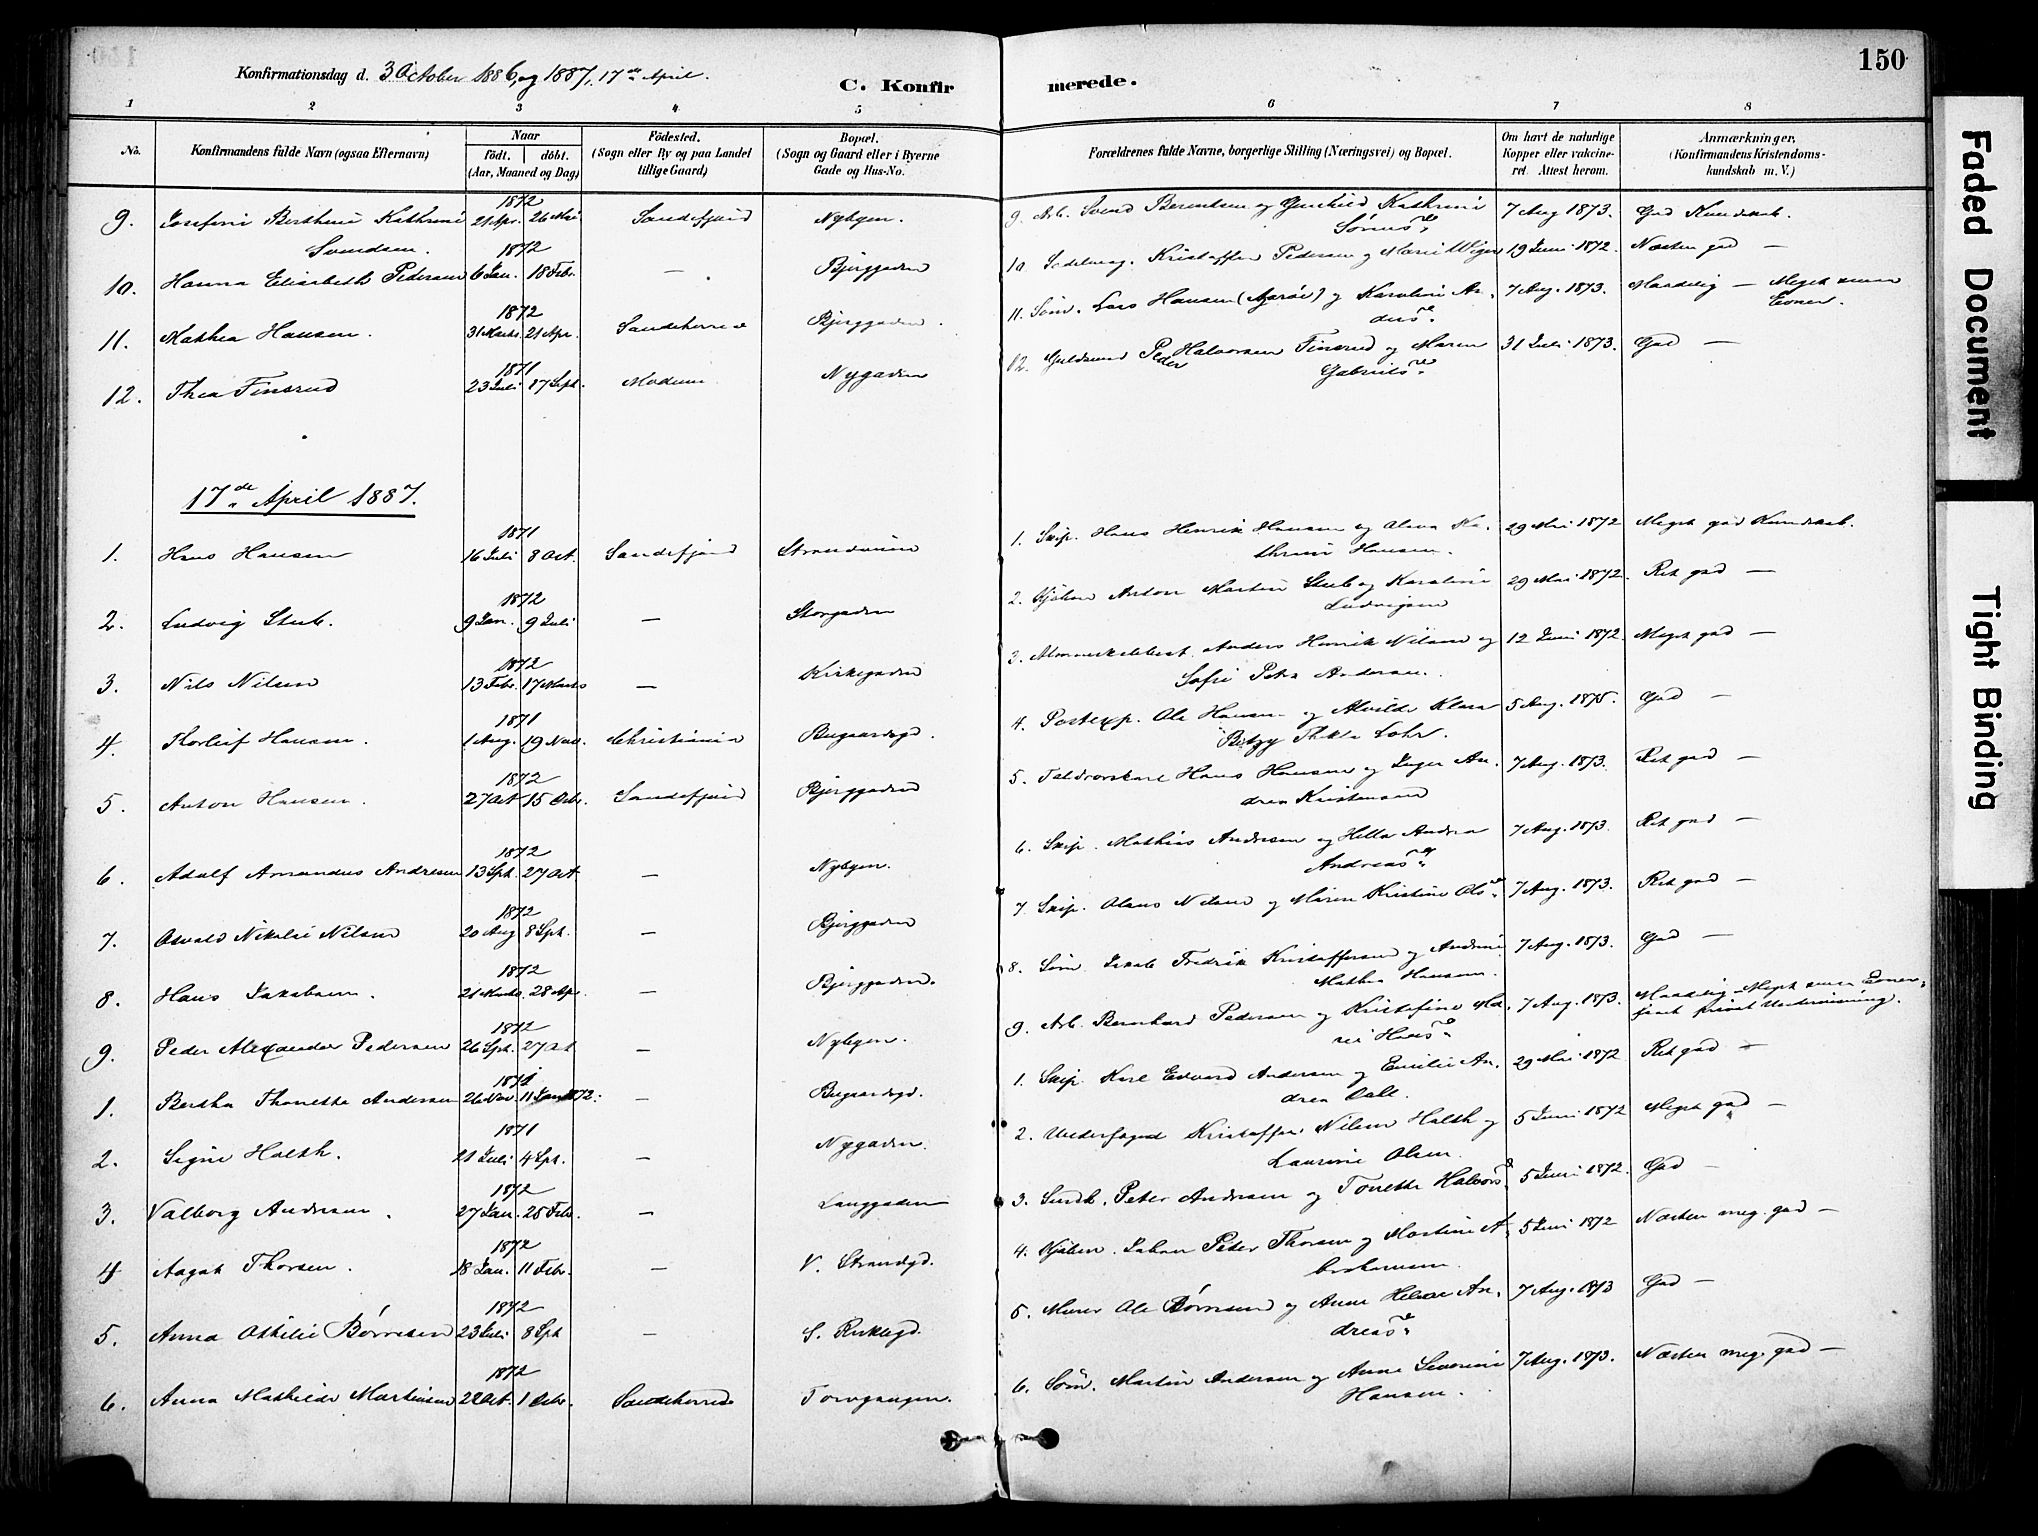 150
Konfirmationsdag d. 3 October 1886, og 1887, 17de April.
C. Konfir merede.
1 2 3 4 5 6 7 8
No. Konfirmandens fulde Navn (ogsaa Efternavn) Naar födt. döbt. (Aar, Maaned og Dag) Födested. (Sogn eller By og paa Landet tillige Gaard) Bopæl. (Sogn og Gaard eller i Byerne Gade og Hus-No. Forældrenes fulde Navne, borgerlige Stilling (Næringsvei) og Bopæl. Om havt de naturlige Kopper eller vakcineret. Attest herom. Anmærkninger, (Konfirmandens Kristendomskundskab m. V.)
9. Josefine Berthine Kathrine Svendsen. 1872 21 Apr. 26 Mai Sandefjord Nybyen. 9. Arb. Svend Berentsen og Gunhild Kathrine Sörens. 7 Aug 1873. God Kundskab.
10. Hanna Elisabeth Pedersen 1872 6 Jan. 18 Febr. — Bjerggaden 10. Kristoffer Pedersen og Marie 19 Juni 1872. Næsten god —
11. Mathea Hansen. 1872 31 Marts. 21 Apr. Sandeherred Bjerggaden. 11. Söm. Lars Hansen og Karoline Anders. 7 Aug. 1873. Maadelig — Meget smaa Evner.
12. Thea Finsrud 1871 23 Juli 17 Sept. Modum Nygaden 12. Guldsmed Peder Halvorsen Finsrud og Maren Gabriels. 31 Juli 1873. God —
17de April 1887.
1. Hans Hansen 1871 16 Juli 8 Oct. Sandefjord Strandveien 1. Skip. Hans Henrik Hansen og Alma Kathrine Hansen. 29 Mai 1872 Meget god Kundskab.
2. Ludvig Stub. 1872 9 Jan. 9 Juli — Storgaden 2. Kjöbm Anton Martin Stub og Karoline Ludvigsen 29 Mai 1872. Ret god —
3. Nils Nilsen 1872 13 Febr. 17 Marts — Kirkegaden 3. Anders Henrik Nilsen og Sofie Petra Andersen. 12 Juni 1872. Meget god —
4. Thorleif Hansen. 1871 1 Aug. 19 Nov. Christiania Bugaardsgd. 4. Postexp. Ole Hansen og Alvilde Klara Betzy Thekla Lohr. 5 Aug. 1875. God —
5. Anton Hansen. 1872 27 Oct 15 Decbr. Sandefjord Bjerggaden 5. Hans Hansen og Inger Andrea Kristensen 7 Aug. 1873. Ret god —
6. Adolf Amandus Andresen 1872 13 Sept. 27 Oct — Nybyen. 6. Skip. Mathias Andresen og Hella Andrea Andreas. 7 Aug. 1873. Ret god —
7. Osvald Nikolai Nilsen 1872 20 Aug 8 Sept. — Bjerggaden 7. Skip. Olaus Nilsen og Maren Kristine Ols. 7 Aug. 1873. Ret god —
8. Hans Jakobsen. 1872 21 Marts 28 Apr. — Bjerggaden. 8. Söm. Jakob Fredrik Kristoffersen og Andrine Mathea Hansen. 7 Aug. 1873. God —
9. Peder Alexander Pedersen 1872 26 Sept. 27 Oct — Nybyen. 9. Arb. Bernhard Pedersen og Kristofine Marie Hans. 7 Aug. 1873. Maadelig — Meget smaa Evner, havt privat Undervisning.
1. Bertha Thonette Andersen 1871 26 Nov 11 Jan 1872. — Bugaardsgd. 1. Skip. Karl Edvard Andersen og Emilie Andrea Dall. 29 Mai 1872 Ret god —
2. Signe Holth. 1871 21 Juli 4 Sept. — Nygaden. 2. Underfoged Kristoffer Nilsen Holth og Laurine Olsen. 5 Juni 1872 Meget god —
3. Valborg Andersen. 1872 27 Jan. 25 Febr. — Langgaden 3. Peter Andersen og Tonette Halvors. 5 Juni 1872. God —
4 Aagot Thorsen. 1872 18 Jan. 11 Febr. — V. Strandgd. 4. Kjöbm. Johan Peter Thorsen og Martine 5 Juni 1872 Næsten meg. god —
5. Anna Othilie Börresen 1872 23 Juli 8 Sept — S. Kirkegd. 5. Murer Ole Börresen og Anne Helene Andreas. 7 Aug. 1873 God —
6. Anna Mathilde Martinsen 1872 22 Oct. 1 Decbr. Sandeherred Torvgangen. 6. Söm. Martin Andersen og Anne Severine Hansen. 7 Aug. 1873. Næsten meg. god —
Faded Document
Tight Binding